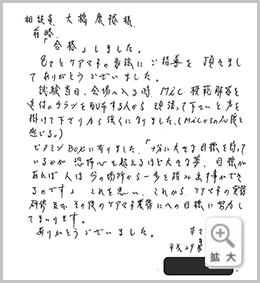 相談室 大橋廣裕様
前略
「合格」しました。
色々とケアマネの事務にご指導を頂きまして
ありがとうございました。
試験当日、会場へ入る時、MLC 模範解答を
送付のチラシを配布する人から 頑張って下さいと声を
掛けて下さり 力強くになりました。(MLCさんの人達と
感じる。)
ビタミンBOXに有りました、「十分に大きな目標を持って
いるかが 恐怖心を超えるほど大きな夢、目標が
あれば 人は今の場所から一歩を踏み出す事ができ
るのです」 これを思い、これから ケアマネの実務
研修
その後のケアマネ業務にへの目標に努力して
まいります。
ありがとうございました。
平成29
拡大